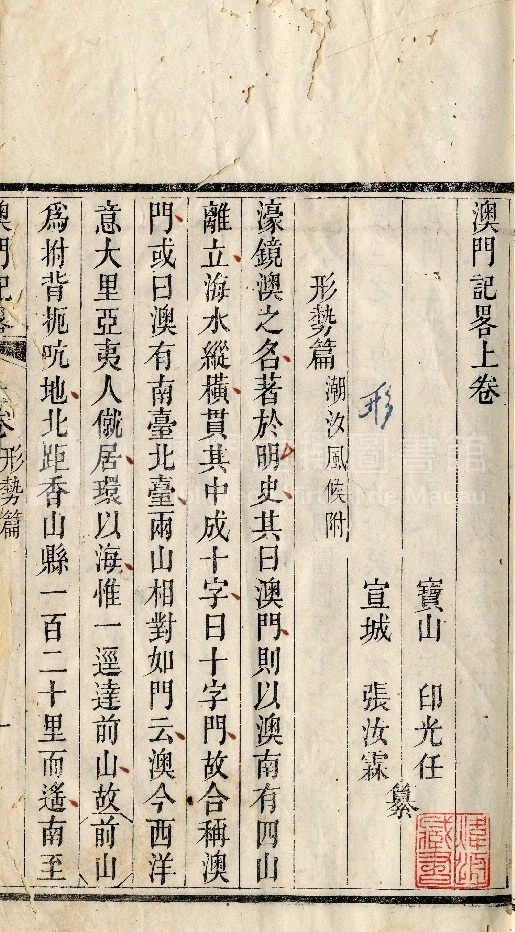 澳門記畧上卷
寶山 印光任
宣城 張汝霖 纂
形
形勢篇 潮汐風候附
濠鏡澳之名著於明史其曰澳門則以澳南有四山
離立海水縱橫貫其中成十字曰十字門故合稱澳
門或曰澳有南臺北臺兩山相對如門云澳今西洋
意大里亞夷人僦居環以海惟一逕達前山故前山
爲拊背扼吭地北距香山縣一百二十里而遙南至
澳門記畧
卷 形勢篇
一